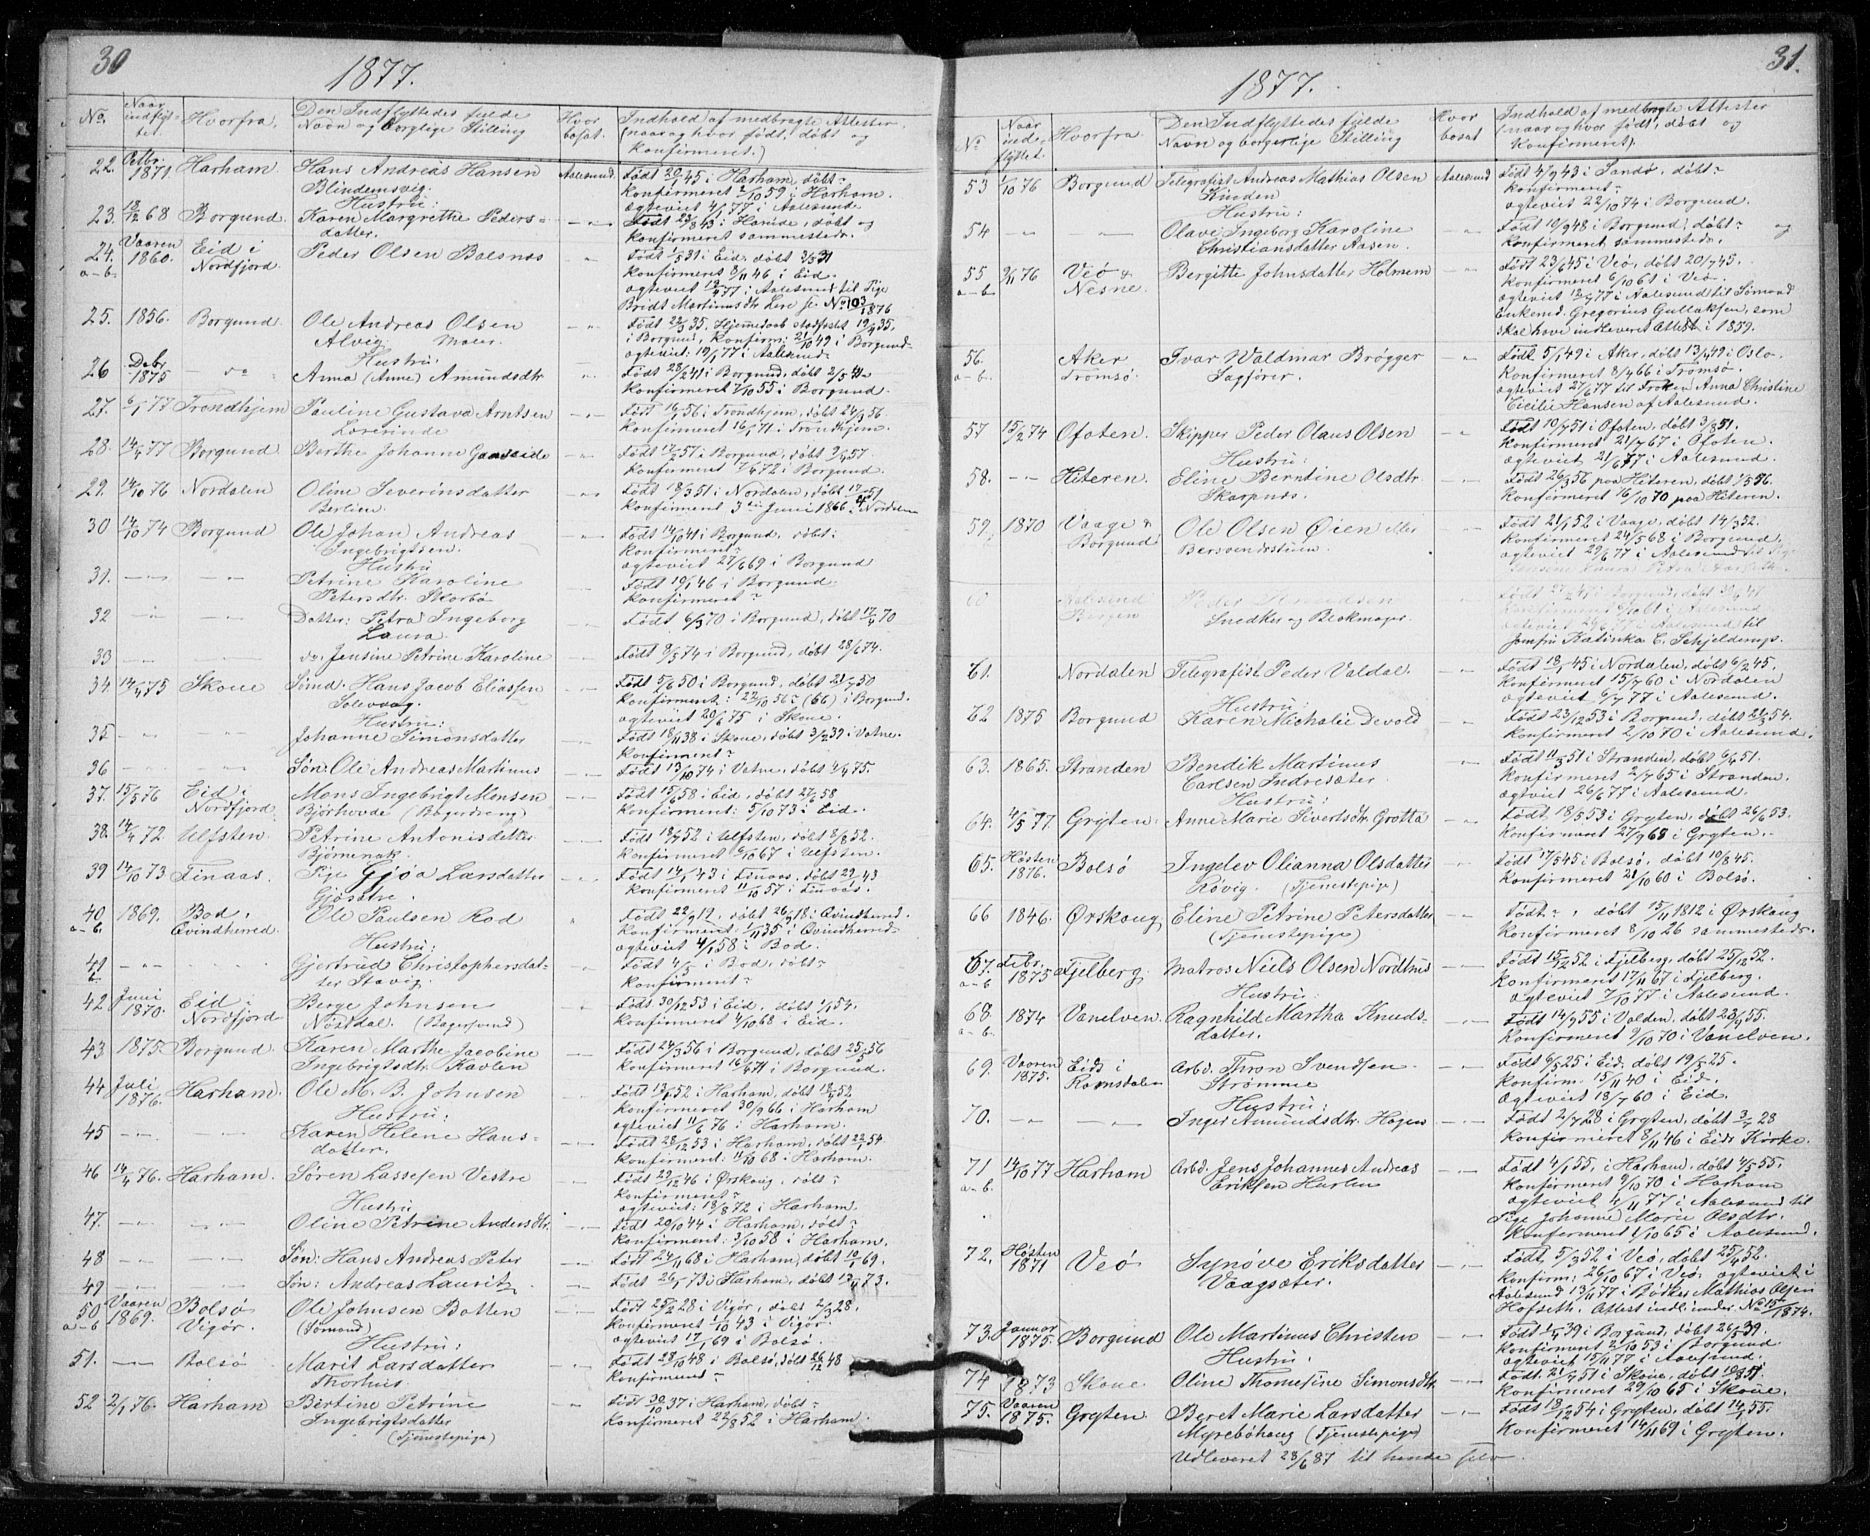 30
1877.
No. Naar indflyttet Hvorfra. Den Indflyttedes fulde Navn og borgerlige Stilling Hvor bosat. Indhold af medbragte Attester (naar og hvor født, døbt og konfirmeret.)
22. Octbr. 1871 Harham Hans Andreas Hansen Blindemsvig. Aalesund. Født 20/1 45 i Harham, døbt ~
Konfirmeret 2/10 59 i Harham.
Ægteviet 4/1 77 i Aalesund
Hustru:
23. 12/12 68 Borgund. Karen Margrethe Peders= datter. Født 23/8 43 i Haride, døbt og
konfirmeret sammesteds.
24. a-b Vaaren 1860. Eid i Nordfjord. Peder Olsen Bolsnæs Født 1/5 31 i Eid, døbt 2/5 31
Konfirmeret 8/11 46 i Eid.
Ægteviet 12/4 77 i Aalesund til Pige
Bridt Martinusdtr. Lere se No 103/1876
25. 1856. Borgund. Ole Andreas Olsen Alvig Maler. Født 22/3 35. Hjemmedaab stadfæstet 19/4 35,
i Borgund, Konfirm: 21/10 49 i Borgund
Ægteviet: 19/1 77 i Aalesund
Hustru:
26 Debr 1875 Anna (Anne) Amundsdtr Født 28/2 41 i Borgund, døbt 2/5 41
Konfirmeret 7/10 55 i Borgund.
27. 6/1 77 Trondhjem Pauline Gustava Arntsen Lærerinde Født 14/1 56 i Trondhjem, døbt 24/3 56.
Konfirmeret 16/4 71 i Trondhjem.
28. 14/4 77 Borgund Berthe Johanne Gaaseide Født 17/2 57 i Borgund, døbt 3/4 57
Konfirmeret 7/4 72 i Borgund.
29. 14/10 76 Nordalen Oline Severinsdatter Berlien. Født 18/3 51 i Nordalen, døbt 17/4 51
Konfirment 3die Juni 1866 i Nordalen
30 14/10 74 Borgund Ole Johan Andreas Ingebrigtsen. Født 14/10 41 i Borgund, døbt:
Konfirmeret ~
Ægteviet 27/6 69 i Borgund
Hustru
31. Petrine Karoline Petersdtr. Skorbø Født 19/1 46 i Borgund
Konfirmeret ~
32 Datter: Petra Ingeborg Laura. Født 6/3 70 i Borgund, døbt 17/4 70
33 do. Jensine Petrine Karoline Født 8/5 74 i Borgund, døbt 28/6 74.
34. 14/4 75 Skoue Sømd. Hans Jacob Eliassen Solevaag. Født 5/6 50 i Borgund, døbt 21/7 50
Konfirmeret: i 22/10 56 (66) i Borgund.
Ægteviet 20/6 75 i Skoue.
Hustru:
35 Johanne Simonsdatter Født 18/11 38 i Skoue, døbt 3/2 39 i Vatne.
Konfirmeret ~
36 Søn: Ole Andreas Martinus Født 13/10 74 i Vatne, døbt 4/4 75.
37. 15/5 76 Eid i Nordfjord. Mons Ingebrigt Monsen Bjørhovde (Bagerdreng) Født 15/6 58 i Eid, døbt 27/6 58
Konfirmeret: 5/10 73 i Eid.
38. 14/4 72 Ulfsten. Petrine Antonisdatter Bjørnenak. Født 18/7 52 i Ulfsten, døbt 8/8 52.
Konfirmeret 6/10 67 i Ulfsten.
39 14/10 73 Finaas. Pige Gjøa Larsdatter Gjøsætre. Født 14/1 43 i Finaas, døbt 29/1 43
Konfirmeret 11/10 57 i Finaas.
40 a-b 1869. Bod. Qvindherred. Ole Paulsen Rod Født 22/9 12, døbt 26/9 18 i Qvindherred.
Konfirmeret: 1/11 35 i Qvindherred
Ægteviet 4/1 58 i Bod.
Hustru:
41 Gjertrud Christophersdat= ter Stavig. Født 4/5 i Bod, døbt ~
Konfirmeret ~
42 Juni 1870. Eid i Nordfjord Berge Johnsen Nøstdal. (Bagersvend) Født 30/12 53 i Eid, døbt 1/1 54.
Konfirmeret 4/10 68 i Eid.
43 1875 Borgund. Karen Marthe Jacobine Ingebrigtsdtr. Kavlen Født 24/3 56 i Borgund, døbt 25/3 56
Konfirmeret 16/4 71 i Borgund.
44 Juli 1876. Harham. Ole M. B. Johnsen Født 13/1 52 i Harham, døbt 18/4 52
Konfirmeret 30/9 66 i Harham
Ægteviet 11/6 76 i Harham.
Hustru:
45 Karen Helene Hans= datter. Født 28/12 53 i Harham, døbt 22/1 54.
Konfirmeret: 11/10 68 i Harham.
46 14/4 76. Harham. Søren Lassesen Vestre Født 29/12 46 i Ørskoug, døbt ~
Konfirmeret ~
Ægteviet: 18/8 72 i Harham.
Hustru
47. Oline Petrine Andersdtr. Født 20/10 44 i Harham, døbt ~
Konfirmeret: 3/10 58 i Harham.
48 Søn: Hans Andreas Peter Født 24/11 68 i Harham, døbt 10/1 69.
49 Søn: Andreas Lauritz Født 26/1 73 i Harham, døbt 13/4 73.
50 a-b Vaaren 1869. Bolsø Vigør. Ole Johnsen Botten (Sømand) Født 25/2 28 i Vigør, døbt 2/3 28.
Konfirmeret 1/10 43 i Vigør.
Ægteviet 17/1 69 i Bolsø.
Hustru:
51. Bolsø Marit Larsdatter Thorhus. Født 28/10 48 i Bolsø, døbt 26/12 48
Konfirmeret ~
52 2/1 76. Harham Bertine Petrine Ingebrigtsdatter (Tjenestepige) Født 30/10 37 i Harham, døbt ~
Konfirmeret 22/8 52 i Harham.
31.
1877.
No. Naar indflyttet. Hvorfra Den Indflyttedes fulde Navn og borgerlige Stilling Hvor bosat Indhold af medbragte Attester (naar og hvor født, døbt og konfirmeret.)
53 1/10 76 Borgund Telegrafist Andreas Mathias Olsen Knoden Aalesund Født 4/9 43 i Sandø, døbt ~
Konfirmeret ~
Ægteviet 22/10 74 i Borgund.
Hustru:
54 Olave Ingeborg Karoline Christiansdatter Aasen. Født 10/9 48 i Borgund, døbt ~ og
Konfirmeret sammesteds.
55 a-b 2/11 76 Veø & Nesne. Bergitte Johnsdatter Holmem Født 23/6 45 i Veø, døbt 20/7 45.
Konfirmeret 6/10 61 i Veø.
Ægteviet 12/4 77 i Aalesund til Sømand
Enkemd. Gregorius Gullaksen, som
skal have indleveret Attest i 1859.
56. a-b. Aker Tromsø. Ivar Waldmar Brøgger Sagfører. Født 5/1 49 i Aker, døbt 13/4 49 i Oslo.
Konfirmeret 8/4 66 i Tromsø.
Ægteviet 27/6 77 til Frøken Anna Christine
Cicilie Hansen af Aalesund.
57 15/2 74 Ofoten. Skipper Peder Olaus Olsen Født 10/7 51 i Ofoten, døbt 3/8 51.
Konfirmeret 21/7 67 i Ofoten.
Ægteviet, 21/6 77 i Aalesund.
Hustru:
58. Hiteren. Eline Berntine Olsdtr. Skarpnes. Født 26/3 56 paa Hiteren, døbt 1/5 56.
Konfirmeret 16/10 70 paa Hiteren.
59. 1870 Vaage & Borgund Ole Olsen Øien eller Født 21/1 52 i Vaage, døbt 14/3 52.
Konfirmeret 24/5 68 i Borgund,
Ægteviet 29/6 77 i Aalesund til Pige
60 Aalesund Bergen Peder Snedker og Blokmager. Født
Ægteviet 29/6 77 i Aalesund til
Jomfru Katinka C. Schjelderup.
61. Nordalen Telegrafist Peder Valdal. Født 18/1 45 i Nordalen, døbt 6/2 45.
Konfirmeret 15/7 60 i Nordalen
Ægteviet 6/7 77 i Aalesund.
Hustru:
62 1875 Borgund Karen Michalie Devold Født 23/12 53 i Borgund, døbt 21/3 54.
Konfirmeret 2/10 70 i Aalesund.
63. 1865. Stranden Bendik Martinus Carlsen Indresæter Født 11/5 51 i Stranden, døbt 6/7 51.
Konfirmeret 2/7 65 i Stranden.
Ægteviet 26/6 77 i Aalesund.
Hustru:
64. 4/5 77. Grytten. Anne Marie Sivertsdtr. Grotta Født, 18/5 53 i Grytten, døbt 26/6 53.
Konfirmeret 27/9 68 i Grytten.
65. Høsten 1876. Bolsø Ingelev Olianna Olsdatter Røvig. (Tjenestepige) Født 17/5 45 i Bolsø, døbt 10/8 45.
Konfirmeret 21/10 60 i Bolsø.
66 1846. Ørskoug Eline Petrine Petersdatter (Tjenestepige) Født ~, døbt 15/11 1812 i Ørskoug
Konfirmeret 8/10 26 sammesteds.
67. a-b Febr. 1875 Fjelberg. Matros Niels Olsen Nordthus Født 15/12 52 i Fjelberg, døbt 25/12 52.
Konfirmeret 17/11 67 i Fjelberg.
Ægteviet 7/10 77 i Aalesund.
Hustru:
68. a-b. 1874 Vanelven. Ragnhild Martha Knuds= datter. Født 14/9 55 i Volden, døbt 23/9 55
Konfirmeret 9/10 70 i Vanelven.
69. Vaaren 1875. Eids i Romsdalen Arbd. Thron Svendsen Strømme Født 6/5 25 i Eid, døbt 19/5 25.
Konfirm. 15/11 40 i Eid.
Ægteviet 18/7 60 i Eid.
Hustru:
70. Inger Amundsdtr. Hagen Født 2/7 28 i Grytten, døbt 3/7 28
Konfirmeret 8/11 46 i Eids Kirke.
71 a-b. 14/10 77 Harham Arbd. Jens Johannes Andreas Eriksen Hurlen Født 4/1 55. i Harham, døbt 4/5 55.
Konfirmeret 9/10 70 i Harham
Ægteviet 4/11 77 i Aalesund til
Pige Johanne Marie Olsdtr.
Konfirmeret 1/10 65 i Aalesund.
72. Høsten 1871 Veø Synøve Eriksdatter Vaagsæter. Født, 5/3 52 i Veø, døbt 25/4 52.
Konfirm: 26/10 67 i Veø. Ægteviet i
Aalesund 13/11 77 i Bødker Mathias Olsen
Hofseth. Attest indl. under No 15/1874.
73. Januar 1875. Borgund Ole Martinus Christen Født 1/4 39 i Borgund, døbt 26/5 39.
Konfirmeret 2/10 53 i Borgund
Ægteviet 15/11 77 i Aalesund.
Hustru:
74 1873 Skoue Oline Thomesine Simonsdtr. Født: 21/7 51 i Skoue, døbt 10/8 51.
Konfirmeret 29/10 65 i Skoue.
75. Vaaren 1875. Grytten Beret Marie Larsdatter Myrebøhaug (Tjenestepige) Født 18/12 54 i Grytten, døbt 14/1 55.
Konfirmeret 14/11 69 i Grytten.
Udleveret 23/6 87 til hende selv.